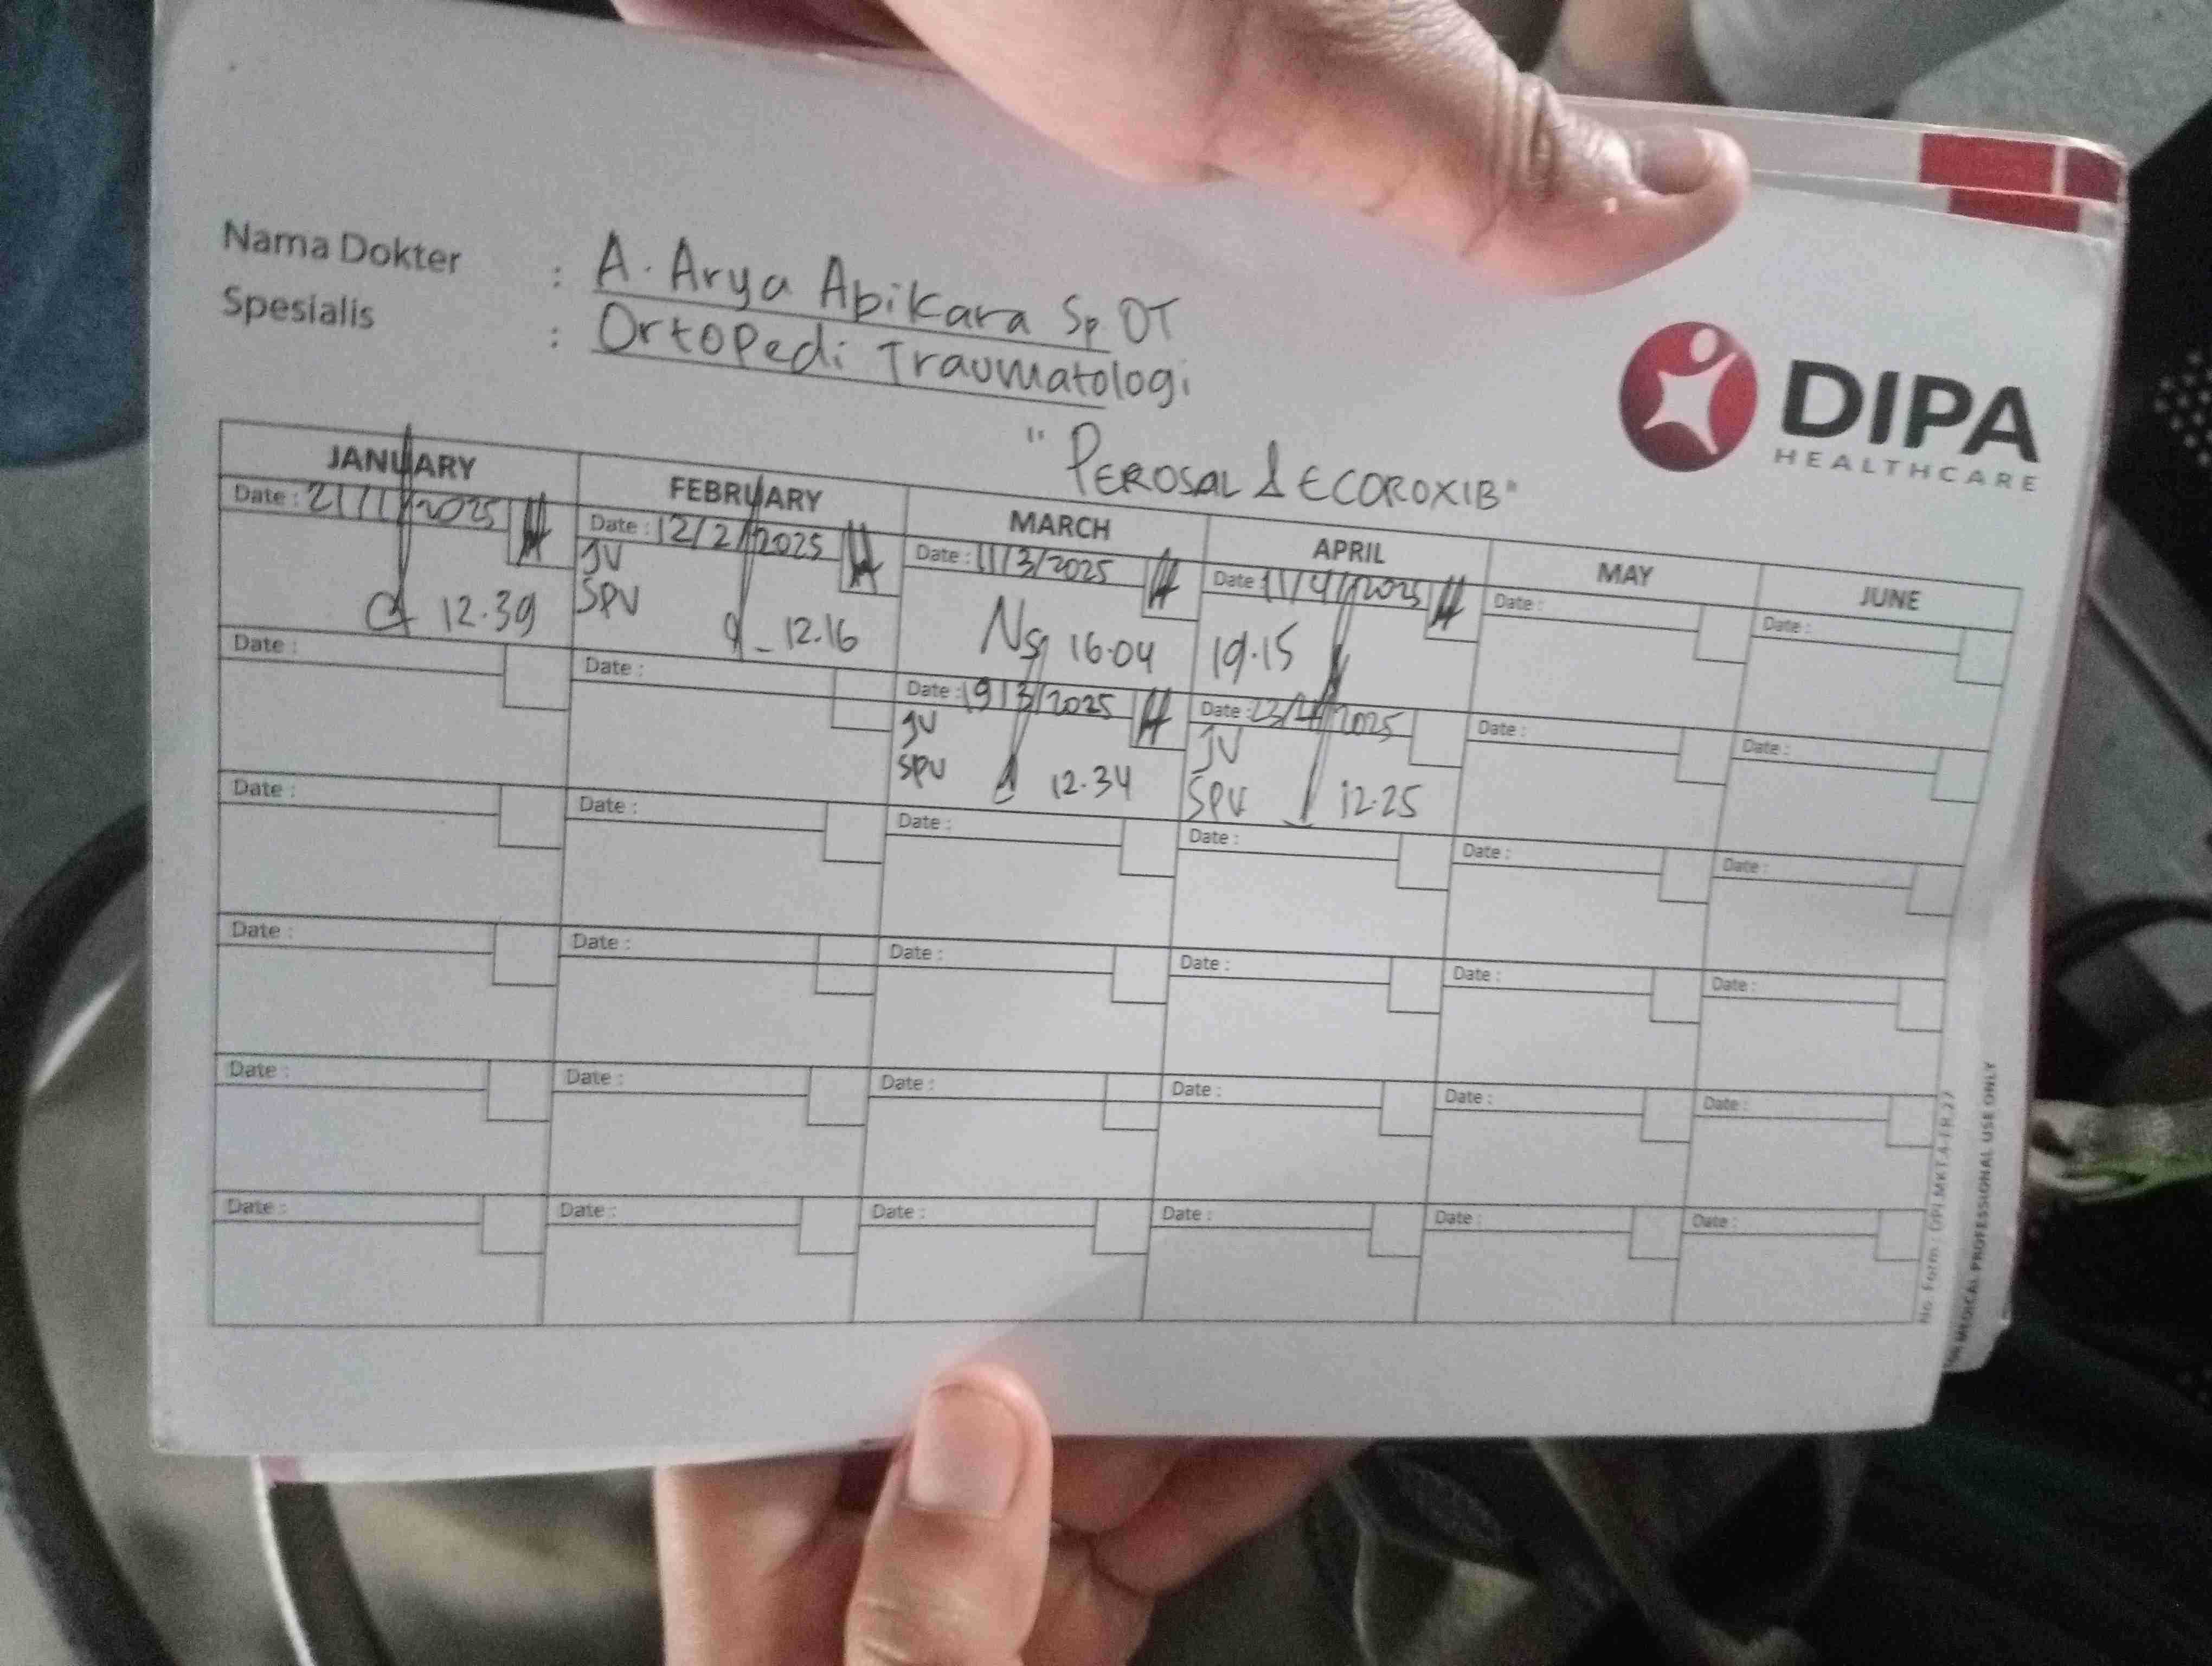 Nama Dokter : A. Arya Abikara Sp. OT
Spesialis : Ortopedi Traumatologi
DIPA
HEALTHCARE
"PEROSAL & ECOROXIB"
JANUARY FEBRUARY MARCH APRIL MAY JUNE
Date : 21/1/2025 Date : 12/2/2025 Date : 11/3/2025 Date : 11/4/2025 Date : Date :
JV
SPV
12.39 12.16 16.04 19.15
Date : Date : Date : 19/3/2025 Date : 23/4/2025 Date : Date :
JV JV
SPV 12.34 SPV 12.25
Date : Date : Date : Date : Date : Date :
Date : Date : Date : Date : Date : Date :
Date : Date : Date : Date : Date : Date :
Date : Date : Date : Date : Date : Date :
No. Form :
MEDICAL PROFESSIONAL USE ONLY